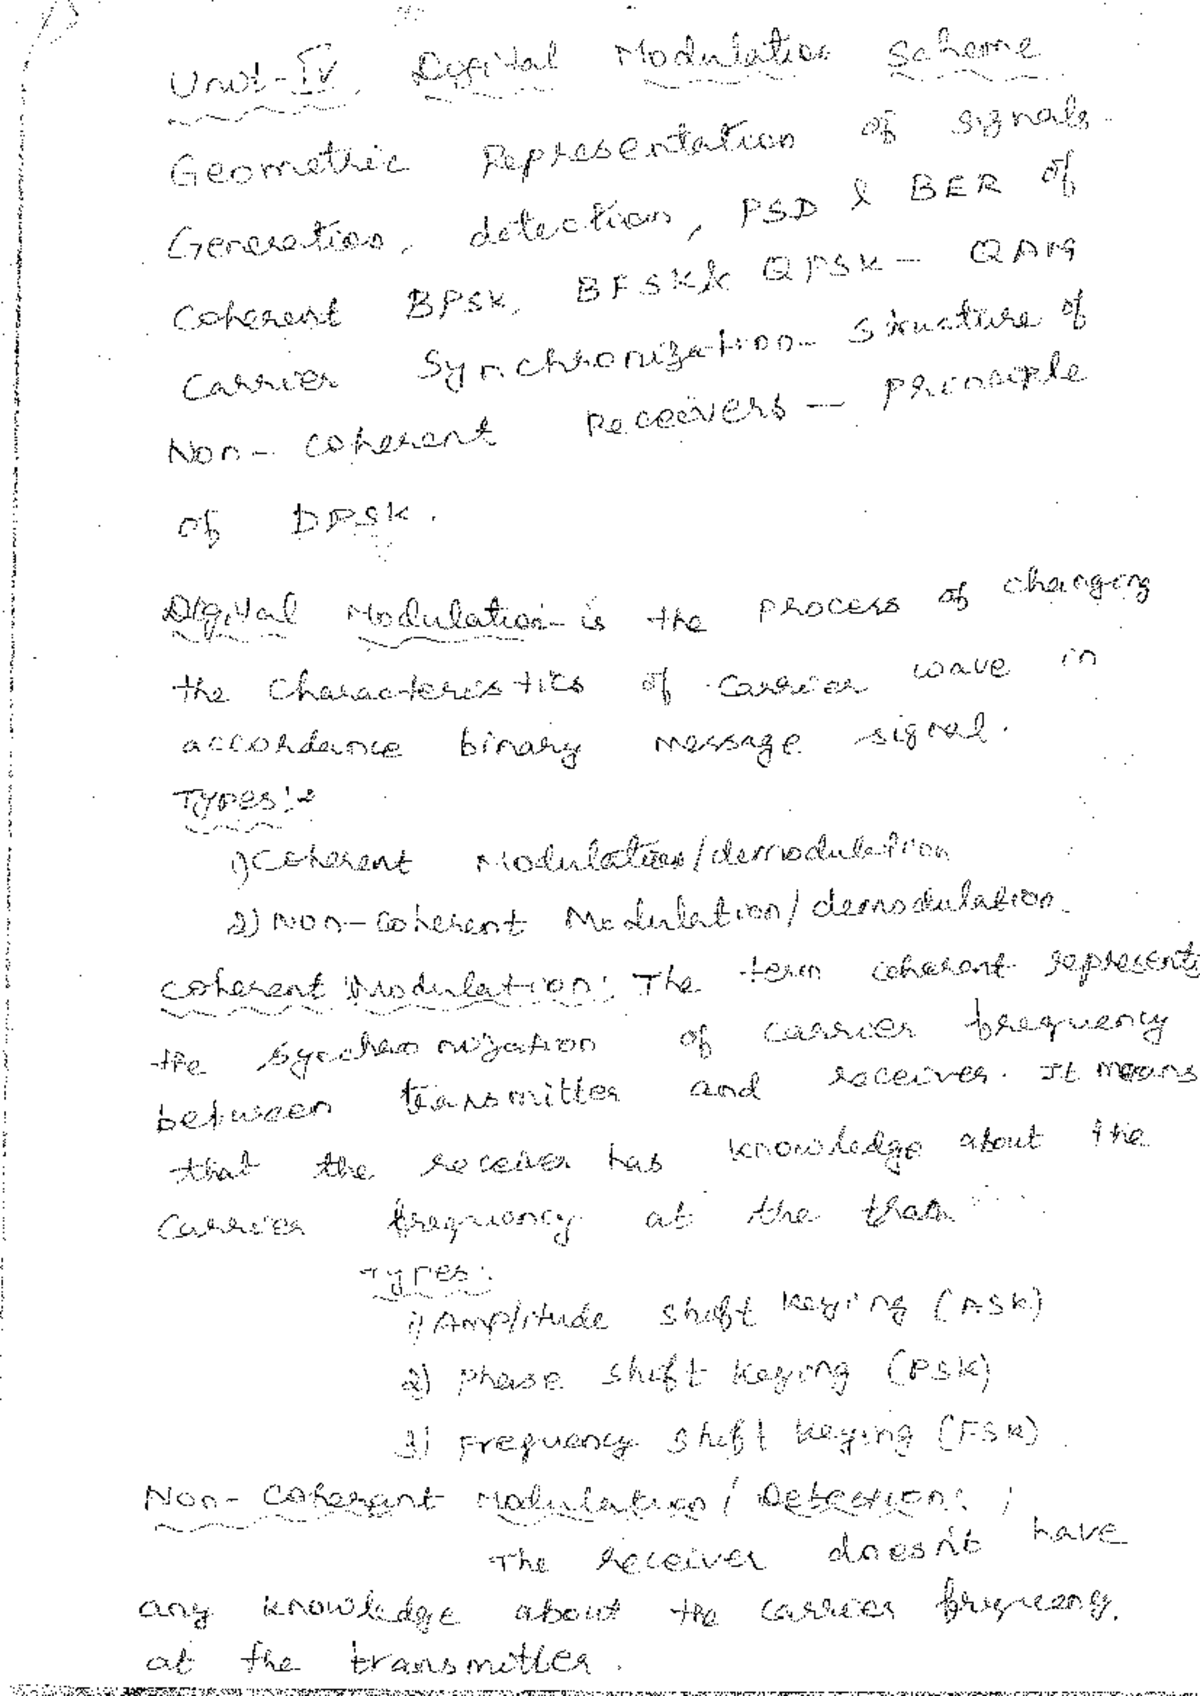 Unit-IV. Digital Modulation Scheme
Geometric Representation of signals.
Generation, detection, PSD & BER of
Coherent BPSK, BFSK & QPSK - QAM
Carrier Synchronization - Structure of
Non-coherent Receivers - Principle
of DPSK.
Digital Modulation - is the process of changing
the characteristics of carrier wave in
accordance binary message signal.
Types:-
1) Coherent Modulation/demodulation
2) Non-coherent Modulation/demodulation.
Coherent Modulation: The term coherent represents
the synchronization of carrier frequency
between transmitter and receiver. It means
that the receiver has knowledge about the
Carrier frequency at the
Types:
1) Amplitude shift Keying (ASK)
2) Phase Shift Keying (PSK)
3) Frequency Shift Keying (FSK).
Non-Coherent Modulation / Detection:
The receiver doesn't have
any knowledge about the carrier frequency.
at the transmitter.